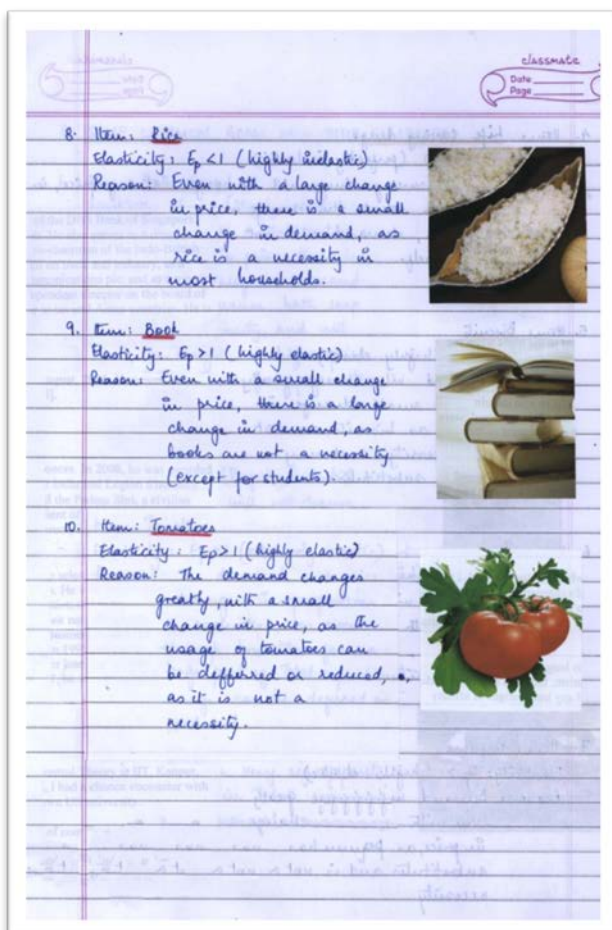 classmate
Date
Page
8. Item: Rice
Elasticity: Ep < 1 (highly inelastic)
Reason: Even with a large change
in price, there is a small
change in demand, as
rice is a necessity in
most households.
9. Item: Book
Elasticity: Ep > 1 (highly elastic)
Reason: Even with a small change
in price, there is a large
change in demand, as
books are not a necessity
(except for students).
10. Item: Tomatoes
Elasticity: Ep > 1 (highly elastic)
Reason: The demand changes
greatly, with a small
change in price, as the
usage of tomatoes can
be defferred or reduced,
as it is not a
necessity.